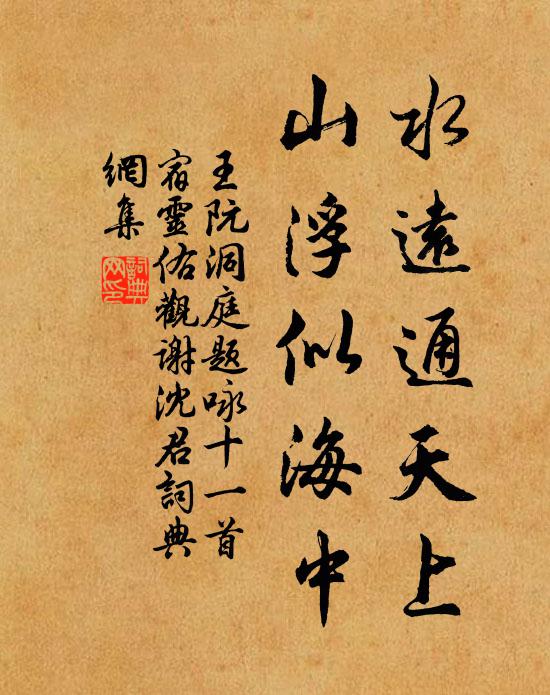 水遠通天上
山浮似海中
王阮洞庭题咏十一首
宿靈佑觀謝沈君詞典
網集
詞典網印